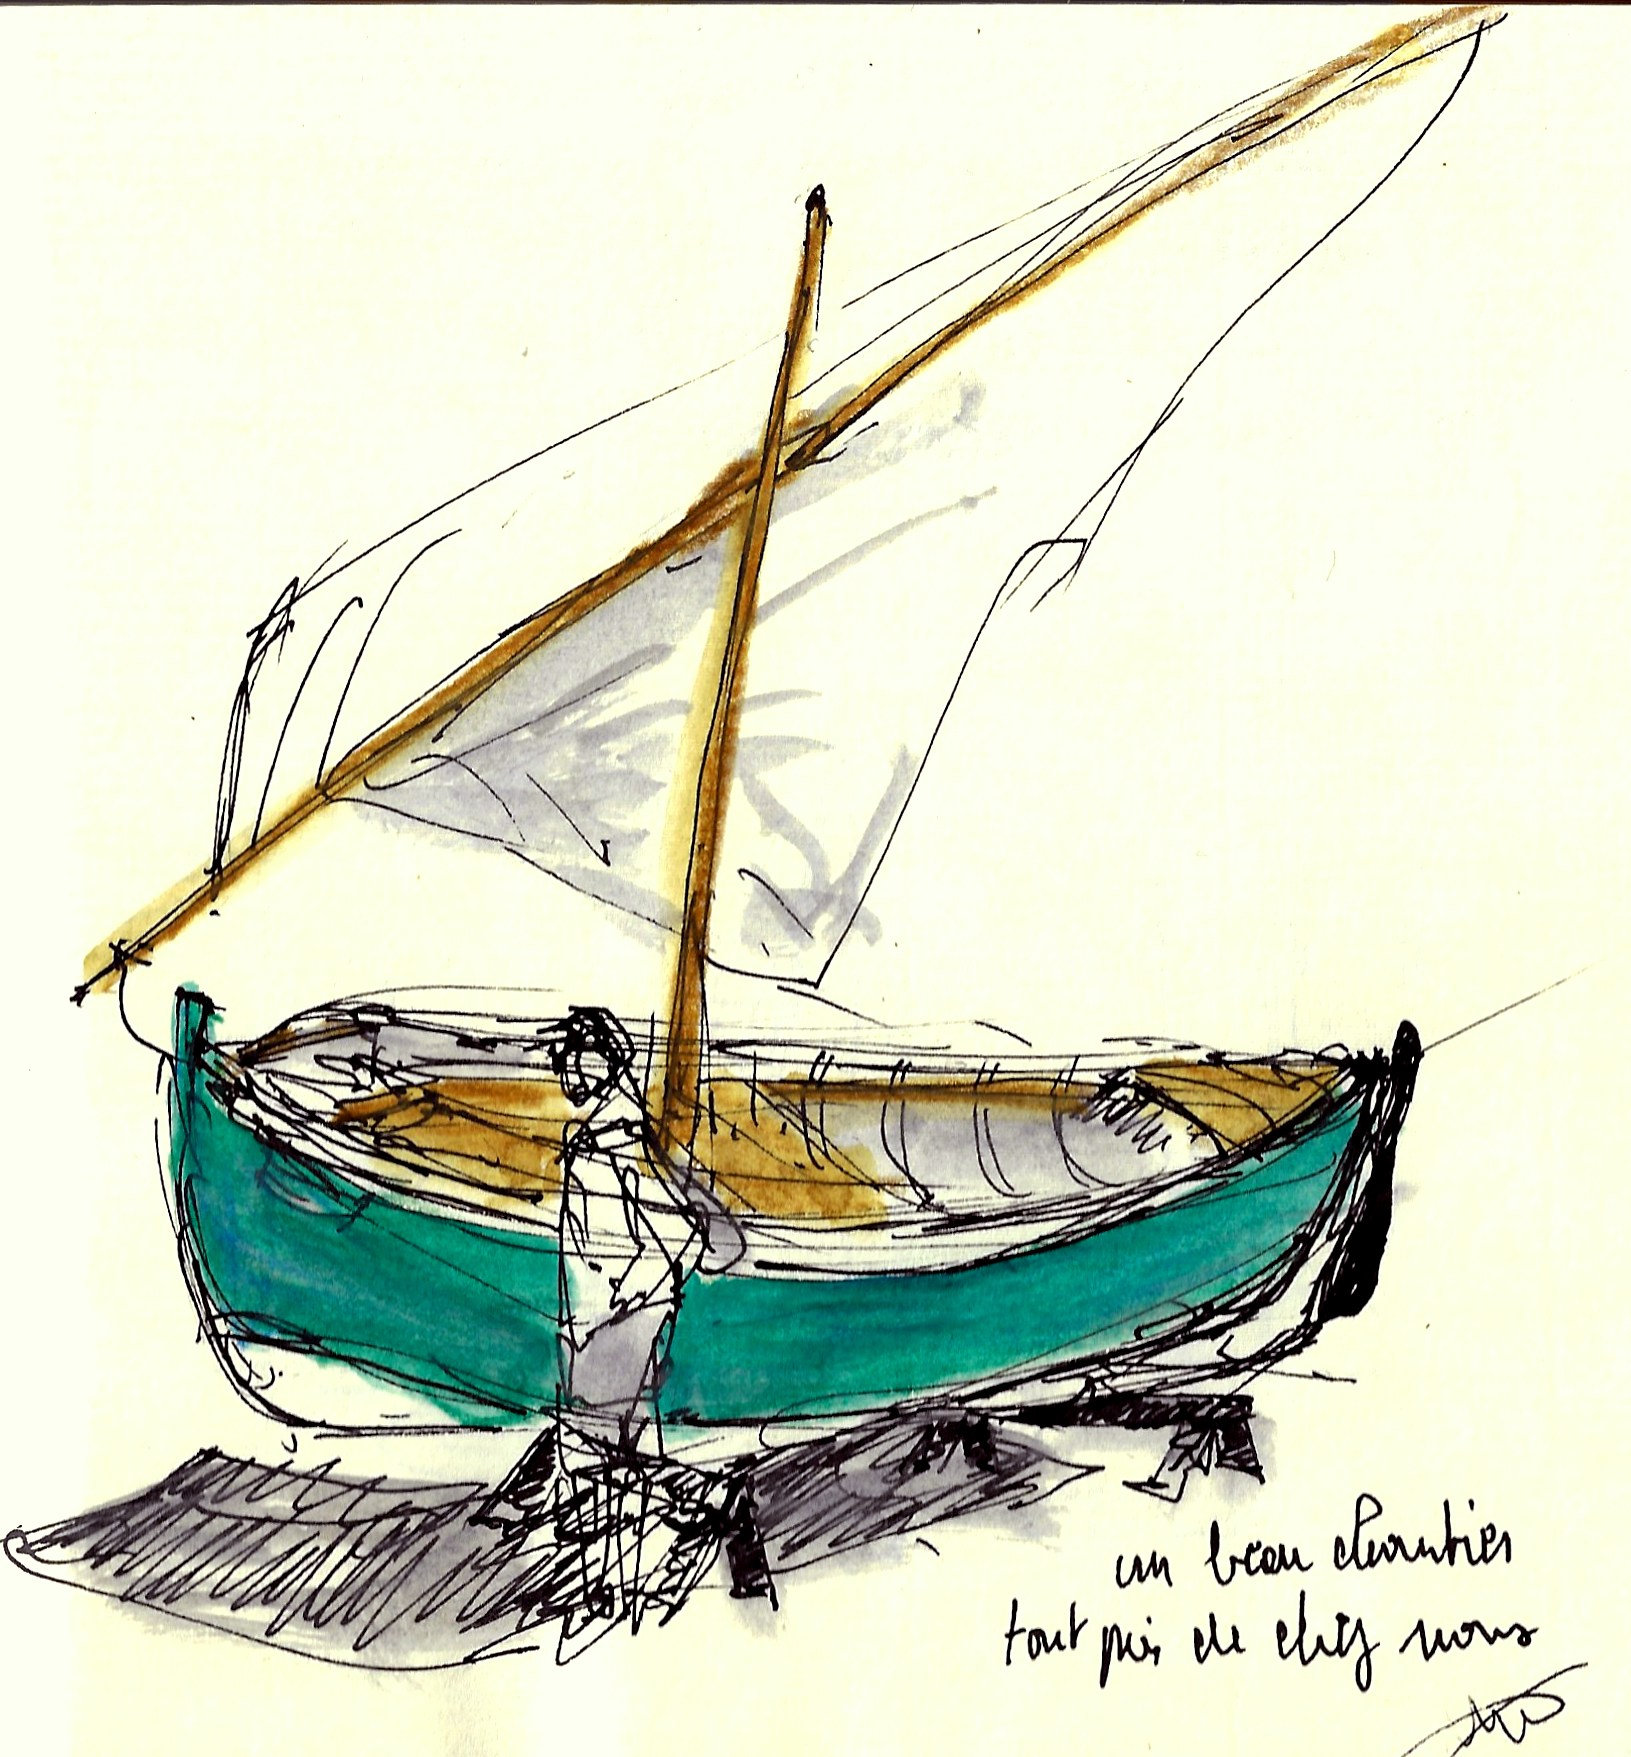 un beau chantier
tout près de chez nous